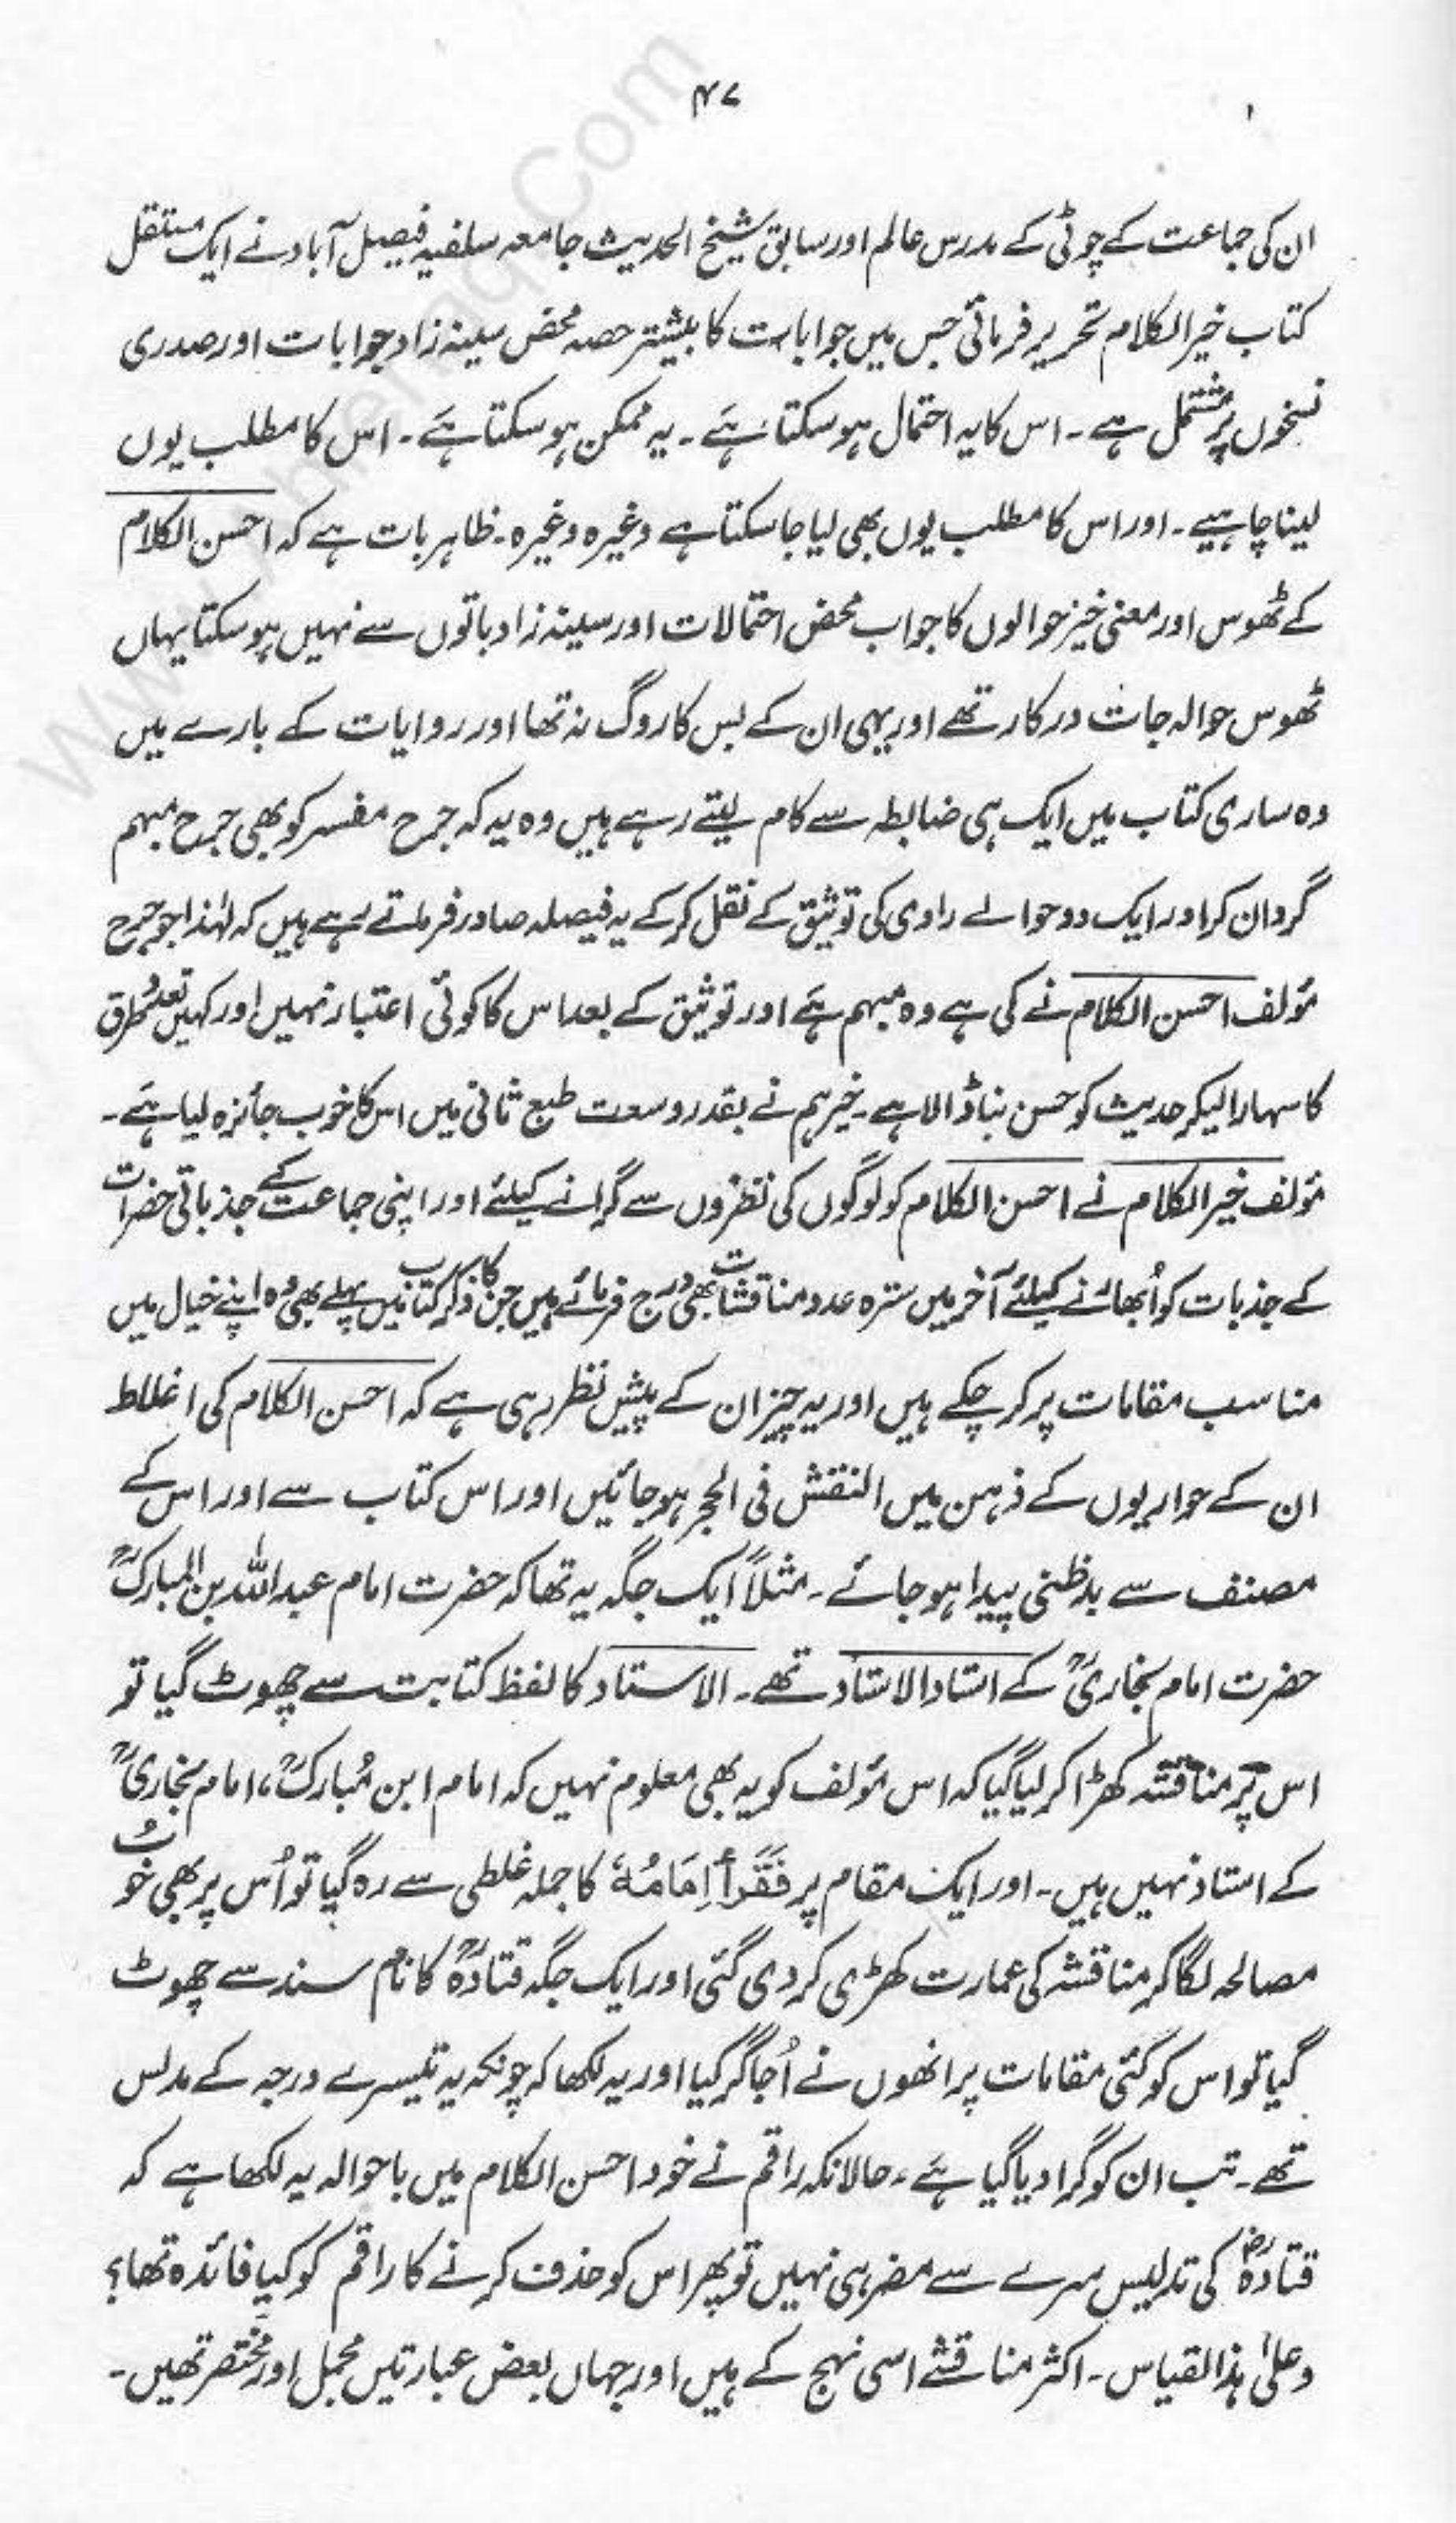 ۴۷
ان کی جماعت کے چوٹی کے مدرس عالم اور سابق شیخ الحدیث جامعہ سلفیہ فیصل آباد نے ایک مستقل
کتاب خیر الکلام تحریر فرمائی جس میں جوابات کا بیشتر حصہ محض سینہ زاد جوابات اور صدری
نسخوں پر مشتمل ہے۔ اس کا یہ احتمال ہو سکتا ہے۔ یہ ممکن ہو سکتا ہے۔ اس کا مطلب یوں
لینا چاہیے۔ اور اس کا مطلب یوں بھی لیا جا سکتا ہے وغیرہ وغیرہ۔ ظاہر بات ہے کہ احسن الکلام
کے ٹھوس اور معنی خیز حوالوں کا جواب محض احتمالات اور سینہ زاد باتوں سے نہیں ہو سکتا یہاں
ٹھوس حوالہ جات درکار تھے اور یہی ان کے بس کا روگ نہ تھا اور روایات کے بارے میں
وہ ساری کتاب میں ایک ہی ضابطہ سے کام لیتے رہے ہیں وہ یہ کہ جرح مفسر کو بھی جرح مبہم
گردان کر اور ایک دو حوالے راوی کی توثیق کے نقل کر کے یہ فیصلہ صادر فرماتے رہے ہیں کہ لہٰذا جو جرح
مؤلف احسن الکلام نے کی ہے وہ مبہم ہے اور توثیق کے بعد اس کا کوئی اعتبار نہیں اور کہیں تعدد طرق
کا سہارا لیکر حدیث کو حسن بنا ڈالا ہے۔ خیر ہم نے بقدر وسعت طبع ثانی میں اس کا خوب جائزہ لیا ہے۔
مؤلف خیر الکلام نے احسن الکلام کو لوگوں کی نظروں سے گرانے کیلئے اور اپنی جماعت کے جذباتی حضرات
کے جذبات کو اُبھارنے کیلئے آخر میں سترہ عدد مناقشات بھی درج فرمائے ہیں جن کا ذکر کتاب میں پہلے بھی وُہ اپنے خیال میں
مناسب مقامات پر کر چکے ہیں اور یہ چیز ان کے پیش نظر رہی ہے کہ احسن الکلام کی اغلاط
ان کے حواریوں کے ذہن میں النقش فی الحجر ہو جائیں اور اس کتاب سے اور اس کے
مصنف سے بدظنی پیدا ہو جائے۔ مثلاً ایک جگہ یہ تھا کہ حضرت امام عبداللہ بن المبارکؒ
حضرت امام بخاریؒ کے استاد الاستاد تھے۔ الاستاد کا لفظ کتابت سے چھوٹ گیا تو
اس پر مناقشہ کھڑا کر لیا گیا کہ اس مؤلف کو یہ بھی معلوم نہیں کہ امام ابن مُبارکؒ، امام بخاریؒ
کے استاد نہیں ہیں۔ اور ایک مقام پر فَقَرَأَ اِمَامُهٗ کا جملہ غلطی سے رہ گیا تو اُس پر بھی خوُب
مصالحہ لگا کر مناقشہ کی عمارت کھڑی کر دی گئی اور ایک جگہ قتادہؒ کا نام سند سے چھوٹ
گیا تو اس کو کئی مقامات پر انھوں نے اُجاگر کیا اور یہ لکھا کہ چونکہ یہ تیسرے درجہ کے مدلس
تھے۔ تب ان کو گرا دیا گیا ہے، حالانکہ راقم نے خود احسن الکلام میں باحوالہ یہ لکھا ہے کہ
قتادہؓ کی تدلیس سرے سے مضر ہی نہیں تو پھر اس کو حذف کرنے کا راقم کو کیا فائدہ تھا؟
وعلیٰ ہذا القیاس۔ اکثر مناقشے اسی نہج کے ہیں اور جہاں بعض عبارتیں مجمل اور مختصر تھیں۔